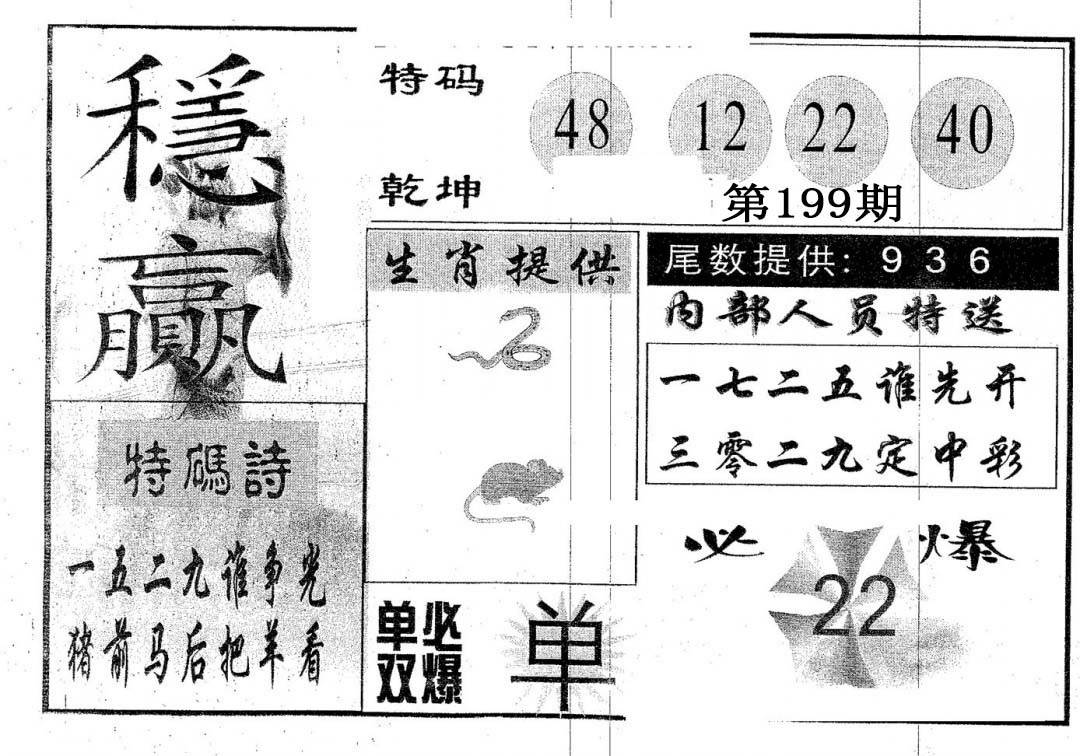 穩贏
特码
乾坤
48 12 22 40
第199期
特碼詩
一五二九谁争光
猪前马后把羊看
生肖提供
单双必爆
单
尾数提供: 9 3 6
内部人员特送
一七二五谁先开
三零二九定中彩
必爆
22